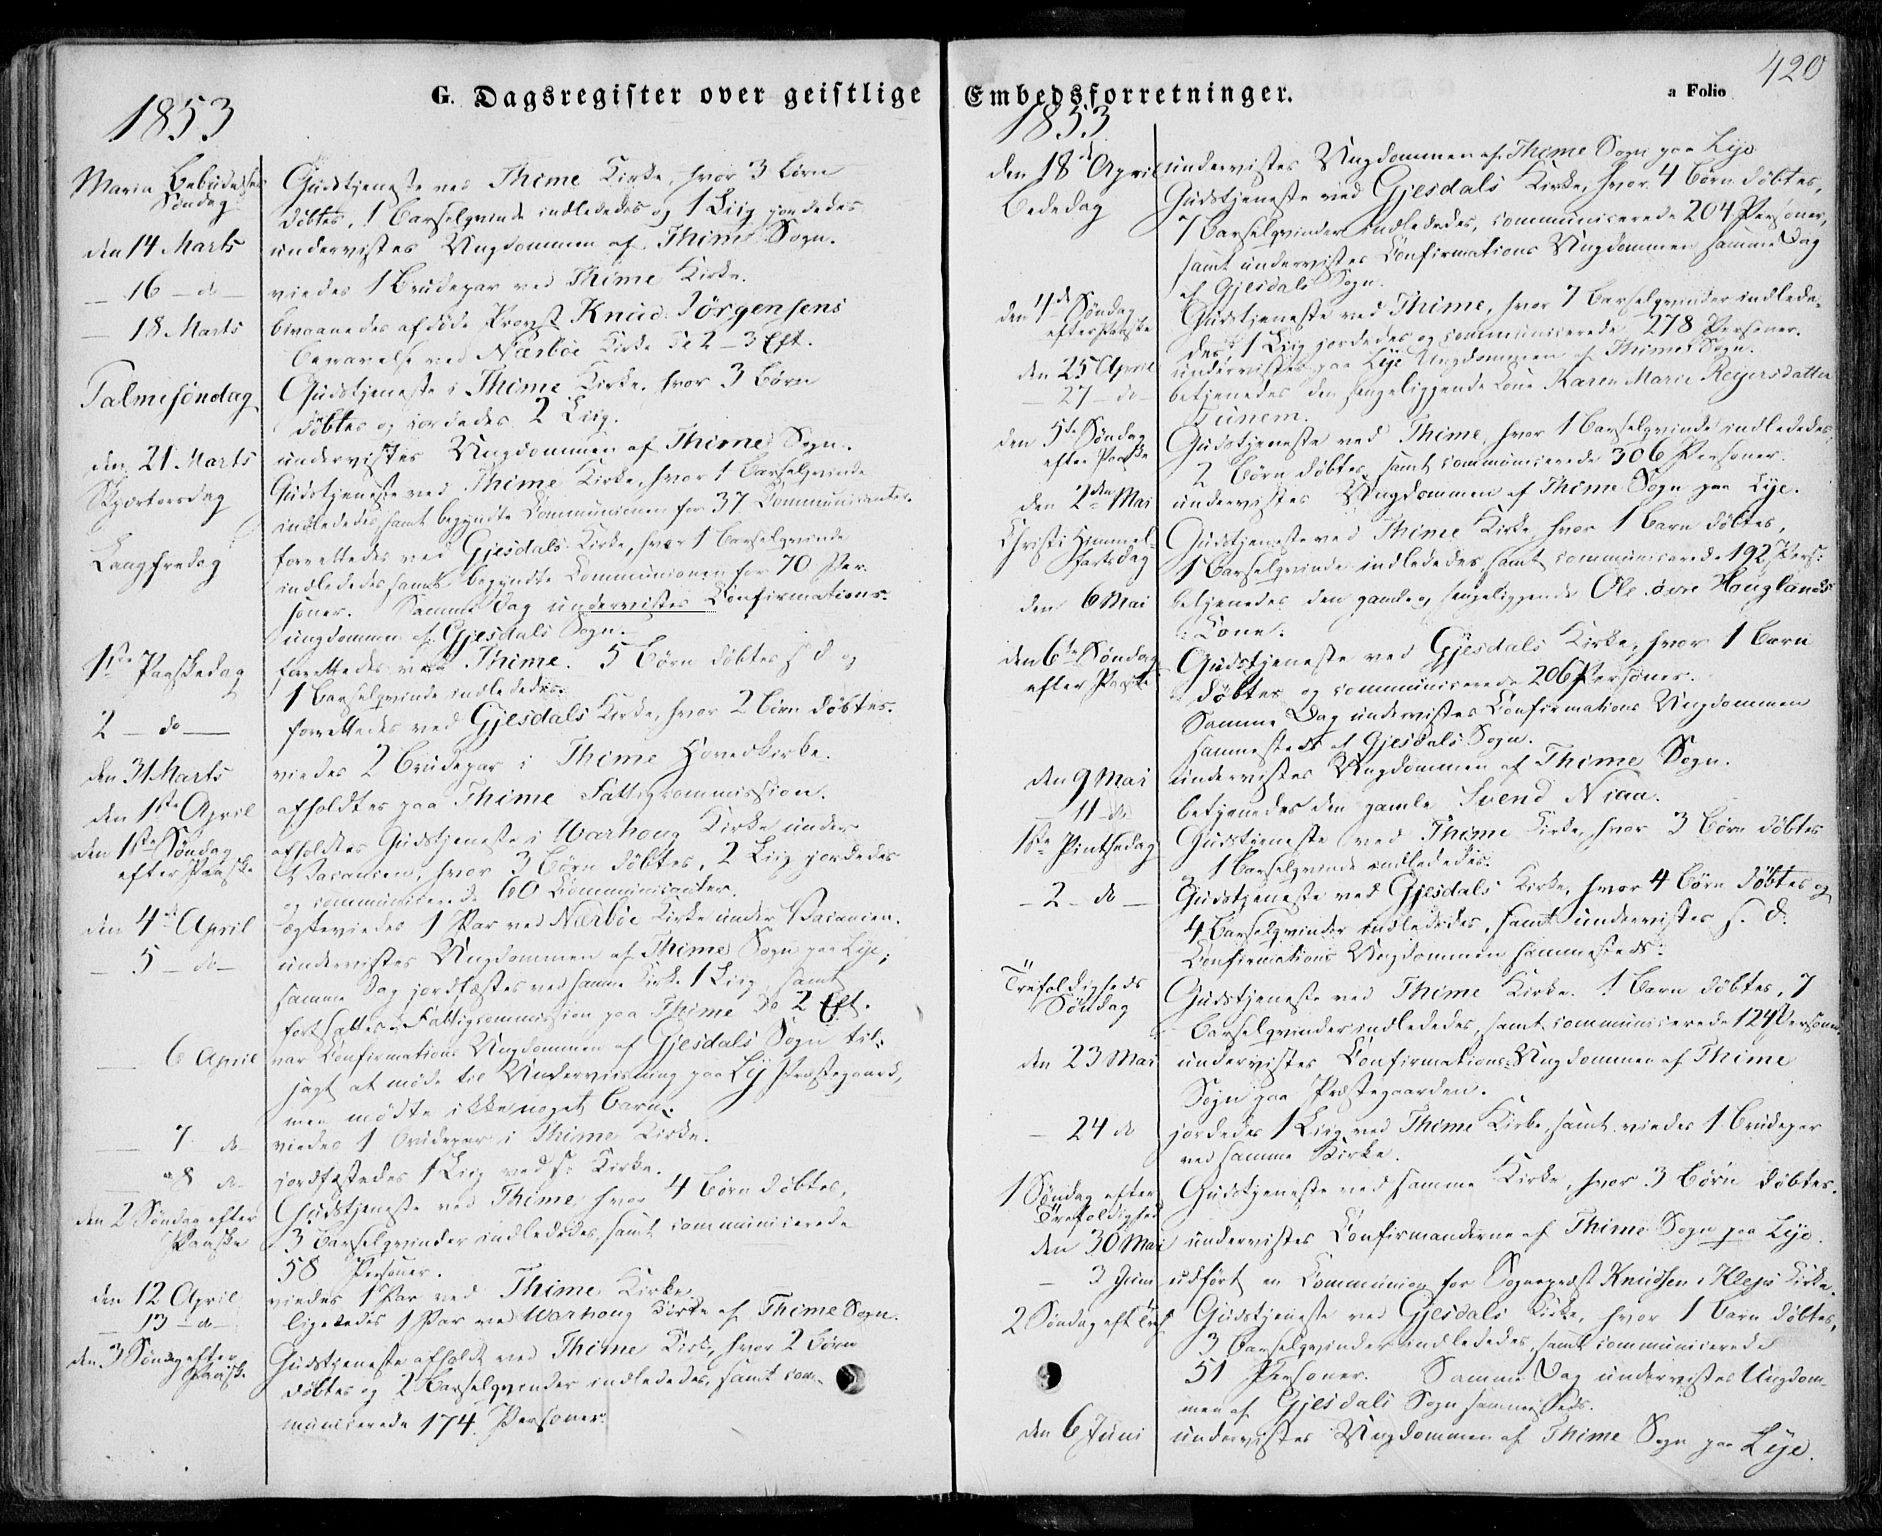 G. Dagsregister over geistlige
1853
Maria Bebudelses Gudstjeneste ved Thime Kirke, hvor 3 Børn
Søndag døbtes, 1 Barselqvinde indlededes og 1 Liig jordedes
den 14 Marts undervistes Ungdommen af Thime Sogn.
— 16 — do — viedes 1 Brudepar ved Thime Kirke.
— 18 Marts bivaanedes afdøde Provst Knud Jörgensens
Begravelse ved Nærböe Kirke Kl 2–3 Eft.
Palmesøndag Gudstjeneste i Thime Kirke, hvor 3 Børn
døbtes og jordedes 2 Liig.
den 21 Marts undervistes Ungdommen af Thime Sogn.
Skjærtorsdag Gudstjeneste ved Thime Kirke, hvor 1 Barselqvinde
indlededes, samt begyndte Communionen for 37 Communicanter.
Langfredag forrettedes ved Gjesdals Kirke, hvor 1 Barselqvinde
indlededes samt begyndte Communionen for 70 Per-
soner. Samme Dag undervistes Confirmations-
ungdommen af Gjesdals Sogn.
1ste Paaskedag forrettedes ved Thime. 5 Børn døbtes s. d. og
1 Barselqvinde indlededes.
2 — do — forrettedes ved Gjesdals Kirke, hvor 2 Börn döbtes.
den 31 Marts viedes 2 Brudepar i Thime Hovedkirke.
den 1ste April afholdtes paa Thime Fattigcommission.
den 1ste Søndag afholdtes Gudstjeneste i Warhoug Kirke under
efter Paaske Vacancen, hvor 3 Børn døbtes, 2 Liig jordedes
og communicerede 60 Communicanter.
den 4de April ægteviedes 1 Par ved Nærböe Kirke under Vacancen.
— 5 — do — undervistes Ungdommen af Thime Sogn paa Lye;
samme Dag jordfæstes ved samme Kirke 1 Liig, samt
fortsattes Fattigcommission paa Thime Kl 2 Eft.
— 6 April var Confirmations Ungdommen af Gjesdals Sogn til-
sagt at møde til Underviisning paa Ly Præstegaard,
men mødte ikke noget Barn.
— 7 do viedes 1 Brudepar i Thime Kirke.
— 8 do jordfæstedes 1 Liig ved s. Kirke.
den 2 Søndag efter Gudstjeneste ved Thime, hvor 4 Børn døbtes,
Paaske 3 Barselqvinder indlededes, samt communicerede
58 Personer.
den 12 April viedes 1 Par ved Thime Kirke.
— 13 — do — ligeledes 1 Par ved Warhoug Kirke af Thime Sogn.
den 3 Søndag efter Gudstjeneste afholdt ved Thime Kirke, hvor 2 Børn
Paaske døbtes og 2 Barselqvinder indlededes, samt com-
municerede 174 Personer.
420
Embedsforretninger.
a Folio
1853
den 18de April undervistes Ungdommen af Thime Sogn paa Lye
Bededag Gudstjeneste ved Gjesdals Kirke, hvor 4 Børn døbtes,
7 Barselqvinder indlededes, communicerede 204 Personer,
samt undervistes Confirmations Ungdommen samme Dag
af Gjesdals Sogn.
den 4de Søndag Gudstjeneste ved Thime, hvor 7 Barselqvinder indlede-
efter Paaske des, 1 Liig jordedes og communicerede 278 Personer.
den 25 April undervistes paa Lye Ungdommen af Thime Sogn.
— 27 — do — betjenedes den sengeliggende Kone Karen Marie Reyersdatter
Tunem.
den 5te Søndag Gudstjeneste ved Thime, hvor 1 Barselqvinde indlededes
efter Paaske 2 Børn døbtes samt communicerede 306 Personer.
den 2den Mai undervistes Ungdommen af Thime Sogn paa Lye.
Christi Himmel- Gudstjeneste ved Thime Kirke, hvor 1 Barn døbtes,
fartsdag 1 Barselqvinde indlededes, samt communicerede 192 Pers.
den 6 Mai betjenedes den gamle og sengeliggende Ole øvre Houglands
Kone.
den 6te Søndag Gudstjeneste ved Gjesdals Kirke, hvor 1 Barn
efter Paaske døbtes og communicerede 206 Personer.
Samme Dag undervistes Confirmations Ungdommen
sammesteds af Gjesdals Sogn.
den 9 Mai undervistes Ungdommen af Thime Sogn.
11 do betjenedes den gamle Svend Niaa.
1ste Pintsedag Gudstjeneste ved Thime Kirke, hvor 3 Børn døbtes
og 1 Barselqvinde indlededes.
— 2 — do — Gudstjeneste ved Gjesdals Kirke, hvor 4 Børn døbtes og
4 Barselqvinder indlededes, samt undervistes s. d.
Confirmations Ungdommen sammesteds.
Trefoldigheds Gudstjeneste ved Thime Kirke. 1 Barn døbtes, 7
Søndag Barselqvinder indlededes, samt communicerede 124 Personer.
den 23 Mai undervistes Confirmations-Ungdommen af Thime
Sogn paa Præstegaarden.
— 24 do jordedes 1 Liig ved Thime Kirke, samt viedes 1 Brudepar
ved samme Kirke.
1 Søndag efter Gudstjeneste ved samme Kirke, hvor 3 Børn døbtes.
Trefoldighed
den 30 Mai undervistes Confirmanderne af Thime Sogn paa Lye.
— 3 Juni udført en Communion for Sognepræst Knudsen i Klep Kirke.
2 Søndag eft Tref. Gudstjeneste ved Gjesdals Kirke, hvor 1 Barn døbtes,
3 Barselqvinder indlededes, samt communicerede
51 Personer. Samme Dag undervistes Ungdom-
men af Gjesdals Sogn sammesteds.
den 6 Juni undervistes Ungdommen af Thime Sogn paa Lye.